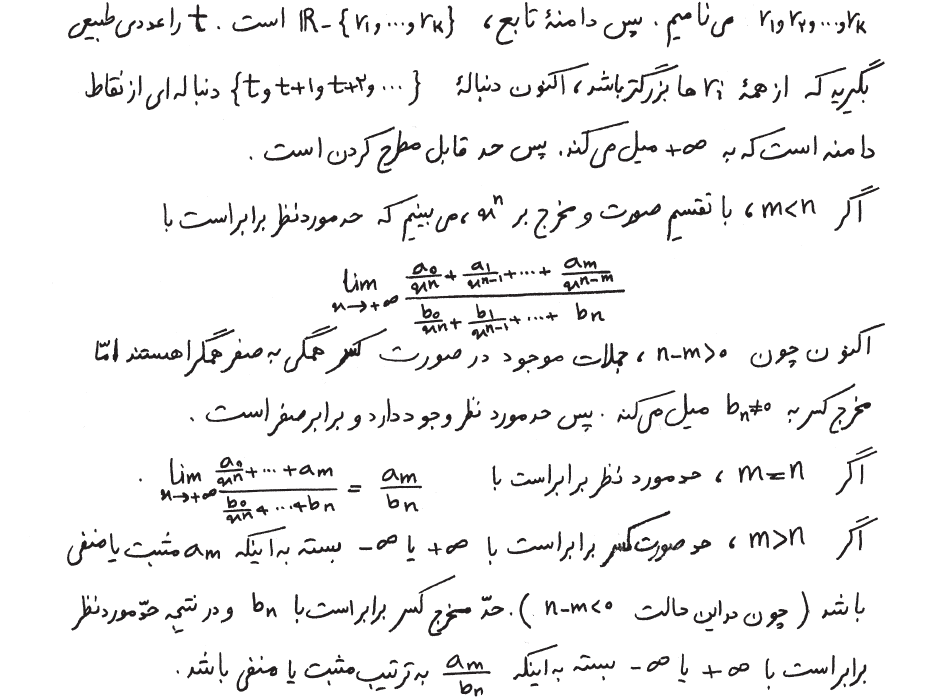 r₁ و r₂ و ... و rₖ می‌نامیم. پس دامنهٔ تابع، ℝ-{r₁, ..., rₖ} است. t را عددی طبیعی
بگیرید که از همهٔ rᵢ ها بزرگتر باشد، اکنون دنبالهٔ {t و t+۱ و t+۲ و ...} دنباله‌ای از نقاط
دامنه است که به +∞ میل می‌کند. پس حد قابل مطرح کردن است.
اگر m<n، با تقسیم صورت و مخرج بر xⁿ، می‌بینیم که حد مورد نظر برابر است با
lim_{x→+∞} (a₀/xⁿ + a₁/xⁿ⁻¹ + ... + aₘ/xⁿ⁻ᵐ) / (b₀/xⁿ + b₁/xⁿ⁻¹ + ... + bₙ)
اکنون چون n-m>۰، جملات موجود در صورت کسر همگی به صفر همگرا هستند امّا
مخرج کسر به bₙ≠۰ میل می‌کند. پس حد مورد نظر وجود دارد و برابر صفر است.
اگر m=n، حد مورد نظر برابر است با lim_{x→+∞} (a₀/xⁿ + ... + aₘ) / (b₀/xⁿ + ... + bₙ) = aₘ/bₙ.
اگر m>n، حد صورت کسر برابر است با +∞ یا -∞ بسته به اینکه aₘ مثبت یا منفی
باشد (چون در این حالت n-m<۰). حدّ مخرج کسر برابر است با bₙ و در نتیجه حدّ مورد نظر
برابر است با +∞ یا -∞ بسته به اینکه aₘ/bₙ به ترتیب مثبت یا منفی باشد.